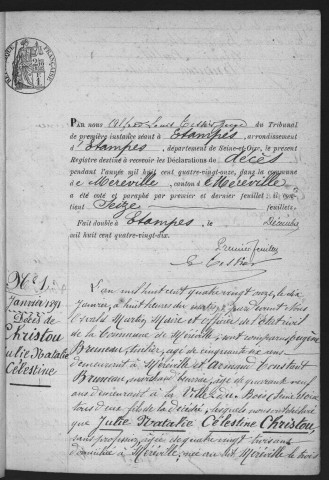 PAR nous
du Tribunal
de première instance séant à Etampes, arrondissement
d'Etampes, département de Seine-et-Oise, le présent
Registre destiné à recevoir les Déclarations de Décès
pendant l'année mil huit cent quatre-vingt-onze, dans la commune
de Méréville, canton de Méréville,
a été coté et paraphé par premier et dernier feuillet; il con-
tient Seize feuillets.
Fait double à Etampes, le Décembre
mil huit cent quatre-vingt-dix.
Premier feuillet
N° 1
Janvier 1891
Décès de
Christou
Julie Natalie
Célestine
L'an mil huit cent quatre vingt onze, le dix
Janvier, à huit heures du matin, par devant nous
Martin, Maire et officier de l'état civil
de la Commune de Méréville, ont comparu Eugène
Bruneau, âgé de cinquante ans
demeurant à Méréville et Constant
Bruneau, âgé de quarante neuf
ans demeurant à la Ville du Bois, Seine et Oise
lesquels nous ont déclaré
que Julie Natalie Célestine Christou,
sans profession, âgée de quatre vingt trois ans
domiciliée à Méréville, née au dit Méréville le trois